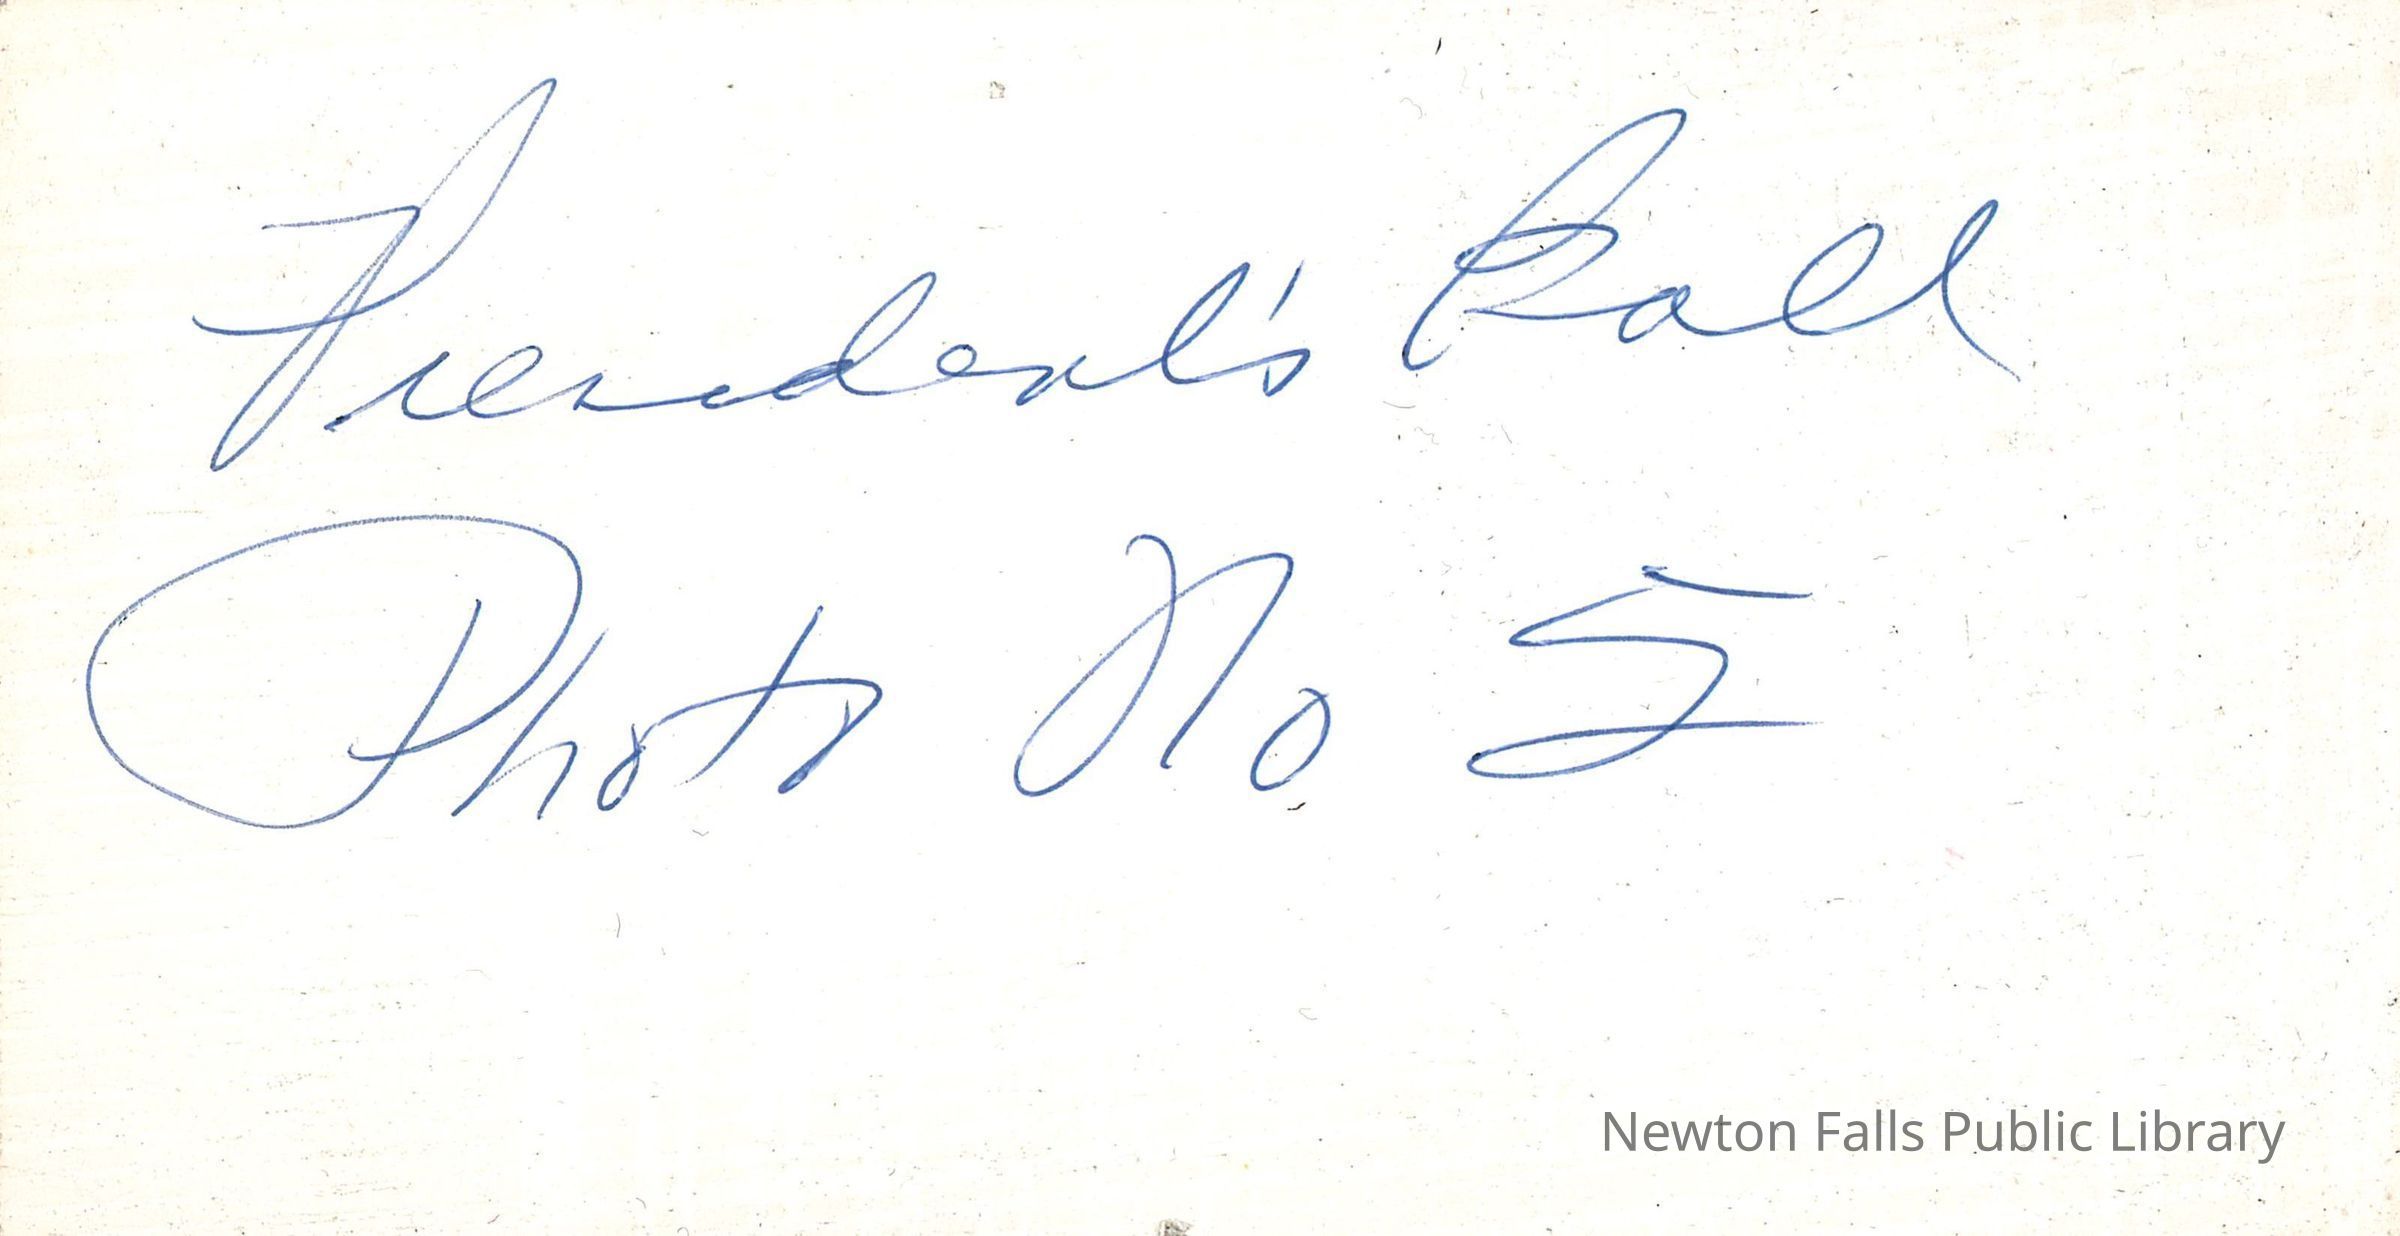 President's Ball
Photo No 5
Newton Falls Public Library